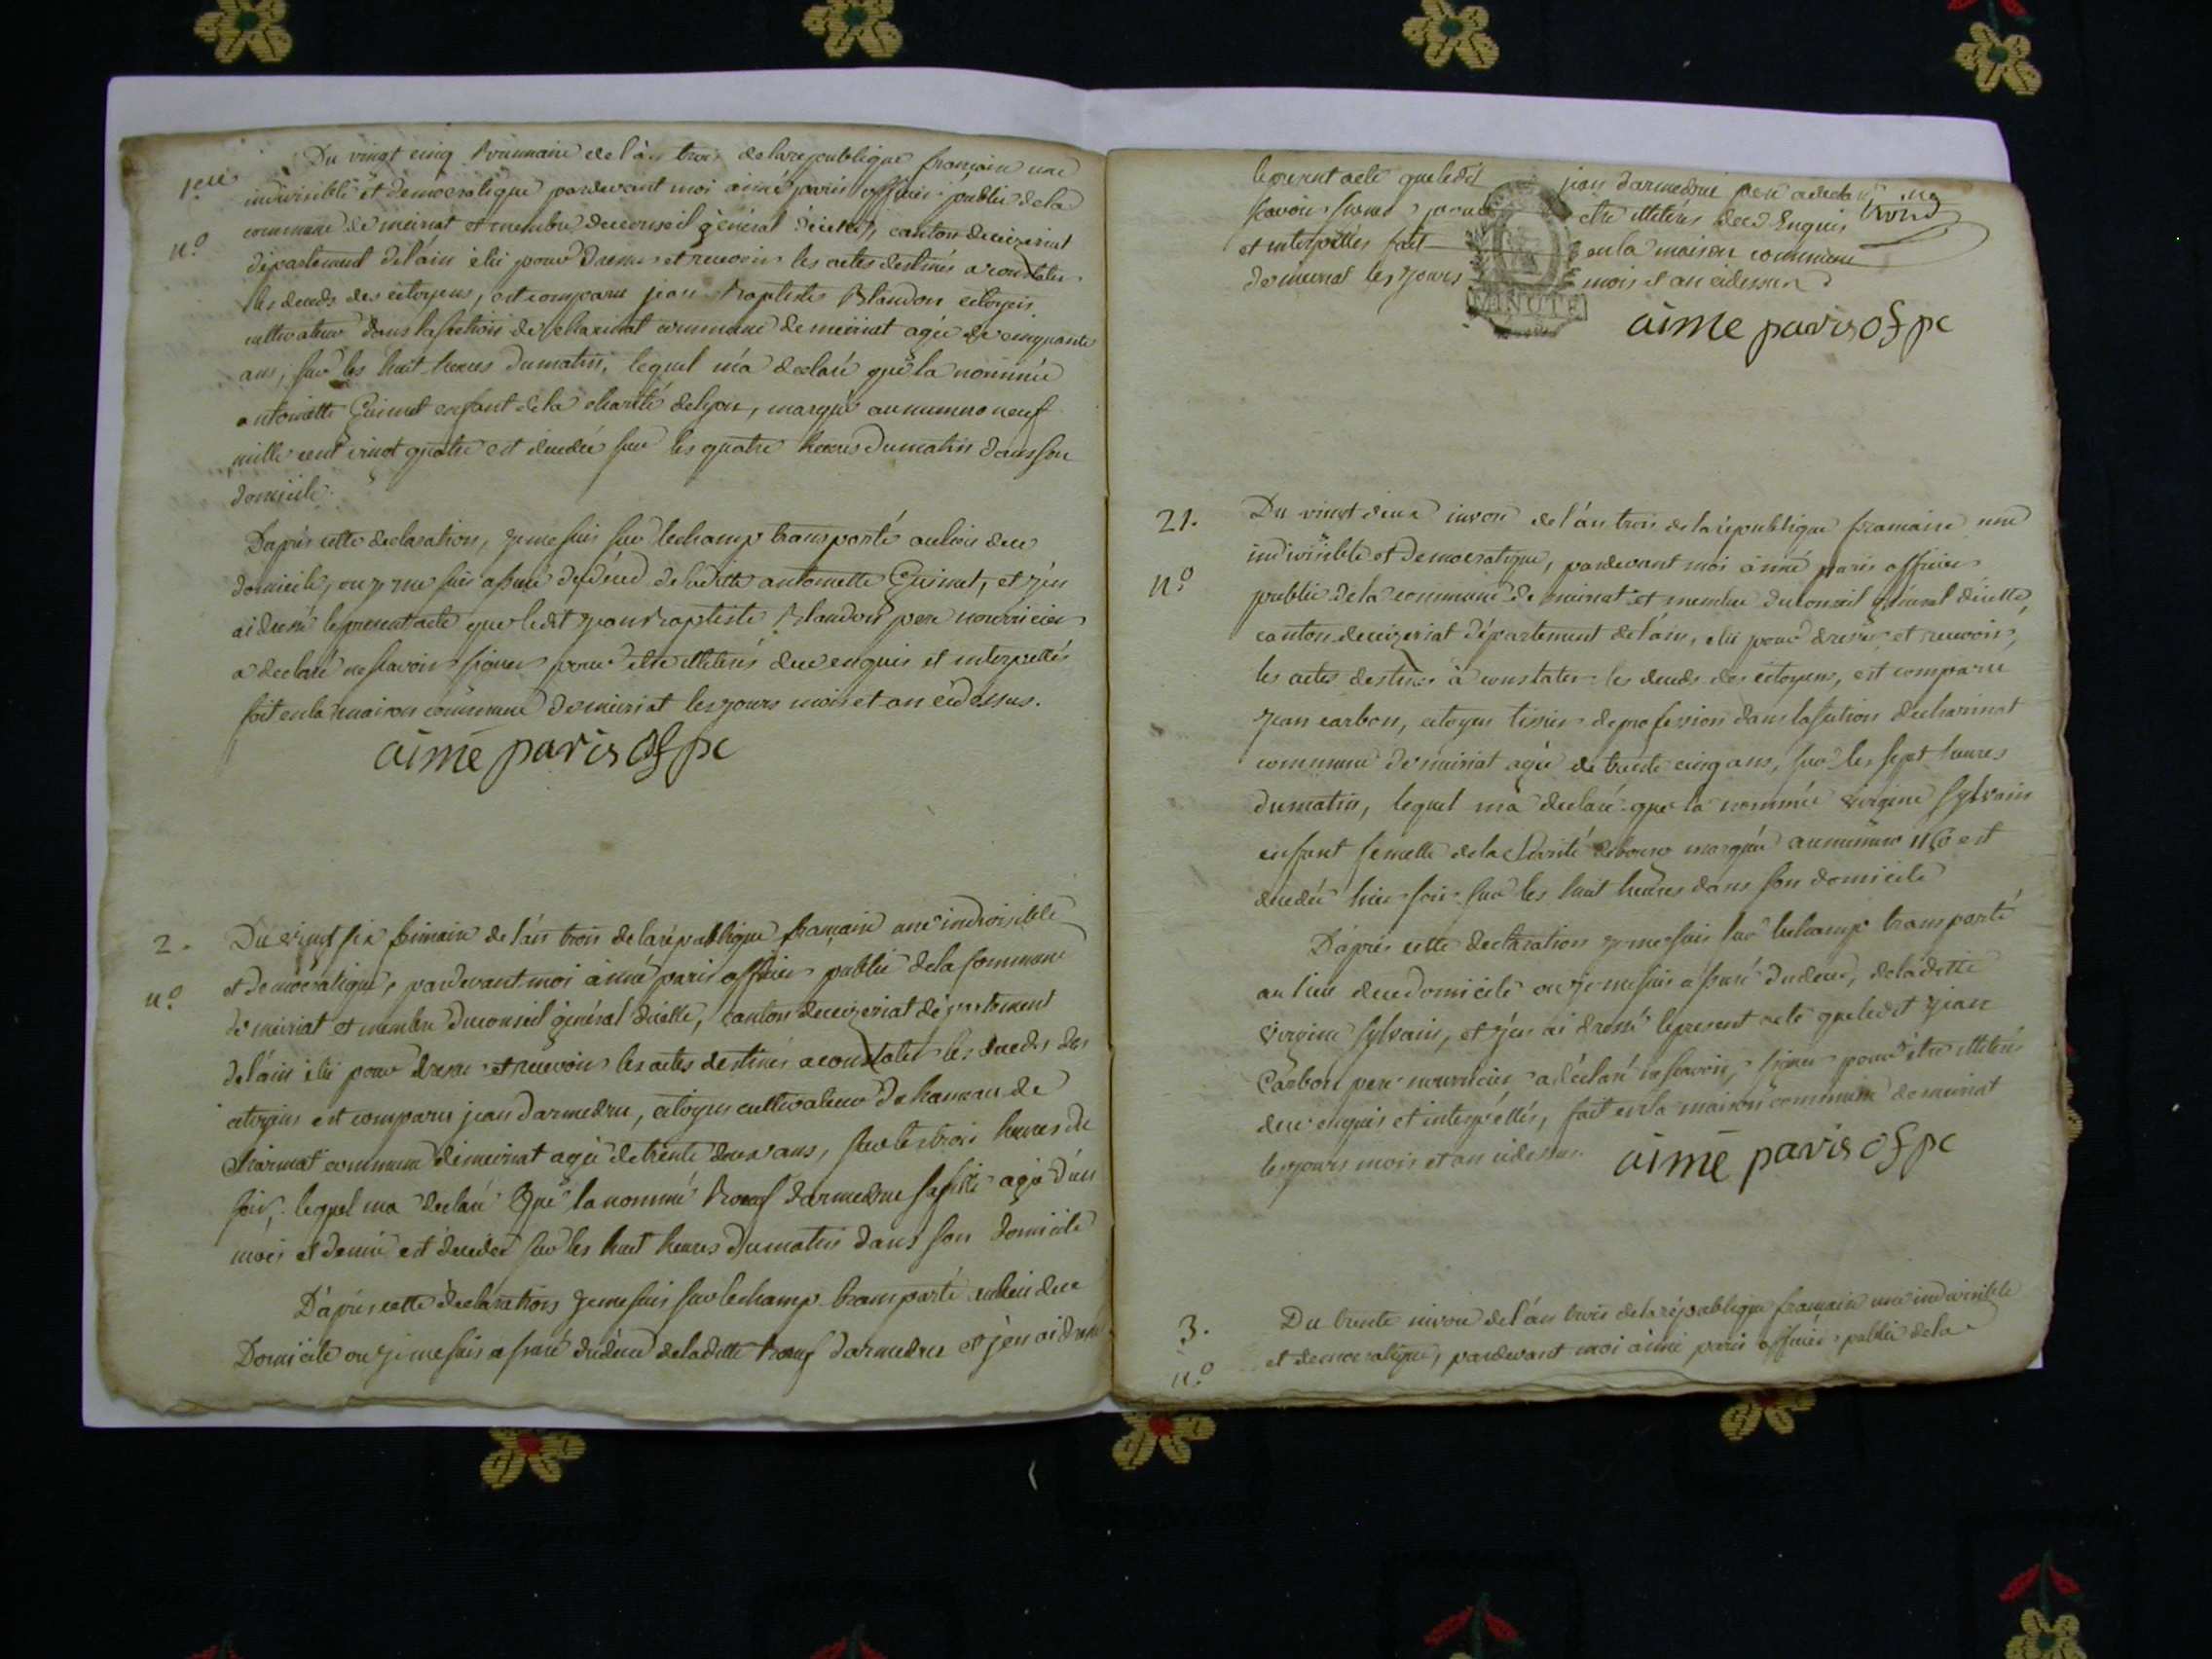 1ere
n°
Du vingt cinq brumaire de l'án trois de la republique françaine une
indivisible et democratique pardevant moi aimé paris officier public de la
commune de meiriat et membre du conseil général d'icelle, canton de ceizeriat
département de láin élu pour dresser et recevoir les actes destinés a constater
les deceds des citoyens, est comparu jean baptiste blandon citoyen
cultivateur dans la section de charinat commune de meiriat agée de cinquante
ans, sur les huit heures du matin, lequel má declaré que la nommée
antoinette Guimet enfant de la charité de lyon, marqué au numero neuf
mille cent vingt quatre est decedée sur les quatre heures du matin dans son
domicile.
Daprés cette declaration, je me suis sur lechamp transporté au lieu dudit
domicile, ou je me suis assuré du déced de laditte antoinette Guimet, et j'en
ai dressé le present acte que ledit jean baptiste blandon pere nourricier
a declaré ne scavoir signer pour etre illitéré de ce enquis et interpellés
fait en la maison commune de meiriat les jours mois et an cidessus.
aimé paris of pc
2.
n°
Du vingt six frimaire de lán trois de la république françaine une indivisible
et démocratique, pardevant moi aimé paris officier public de la commune
de meiriat et membre du conseil général dicelle, canton de ceizeriat département
de láin élu pour dresser et recevoir les actes destinés a constater les deceds des
citoyens est comparu jean darmedru, citoyen cultivateur du hameau de
charinat commune de meiriat agée de trente deux ans, sur les trois heures du
soir, lequel ma declaré que la nommé darmedru sa fille agée d'un
mois et demi est decedée sur les huit heures du matin dans son domicile
D'aprés cette declaration je me suis sur lechamp transporté au lieu dudit
Domicile ou je me suis assuré du déced de laditte darmedru et j'en ai dressé
le present acte que ledit jean darmedru pere a declaré ne
scavoir signer pour etre illitérés de ce Enquis
et interpellés fait en la maison commune
de meiriat les jours mois et an cidessus
MINUTE
aimé paris of pc
21.
n°
Du vingt deux nivose de l'án trois de la république françaine une
indivisible et democratique, pardevant moi aimé paris officier
public de la commune de meiriat et membre du conseil général dicelle,
canton de ceizeriat département de láin, elu pour dresser et recevoir,
les actes destinés à constater les deceds des citoyens, est comparu
jean carbon, citoyen tissier de profession dans la section de charinat
commune de meiriat agée de trente cinq ans, sur les sept heures
du matin, lequel má declaré que la nommée virginie sylvain
enfant femelle de la Charité de bourg marquée au numero est
decedée hier soir sur les huit heures dans son domicile
D'aprés cette declaration je me suis sur lechamp transporté
au lieu dudit domicile ou je me suis assuré du deced, de laditte
virginie sylvain, et j'en ai dressé le present acte que ledit jean
Carbon pere nourricier a déclaré ne scavoir, signer pour etre illitérés
de ce enquis et interpéllés, fait en la maison commune de meiriat
les jours mois et an cidessus.
aimé paris of pc
3.
n°
Du trente nivose de l'án trois de la république françaine une indivisible
et democratique, pardevant moi aimé paris officier public de la